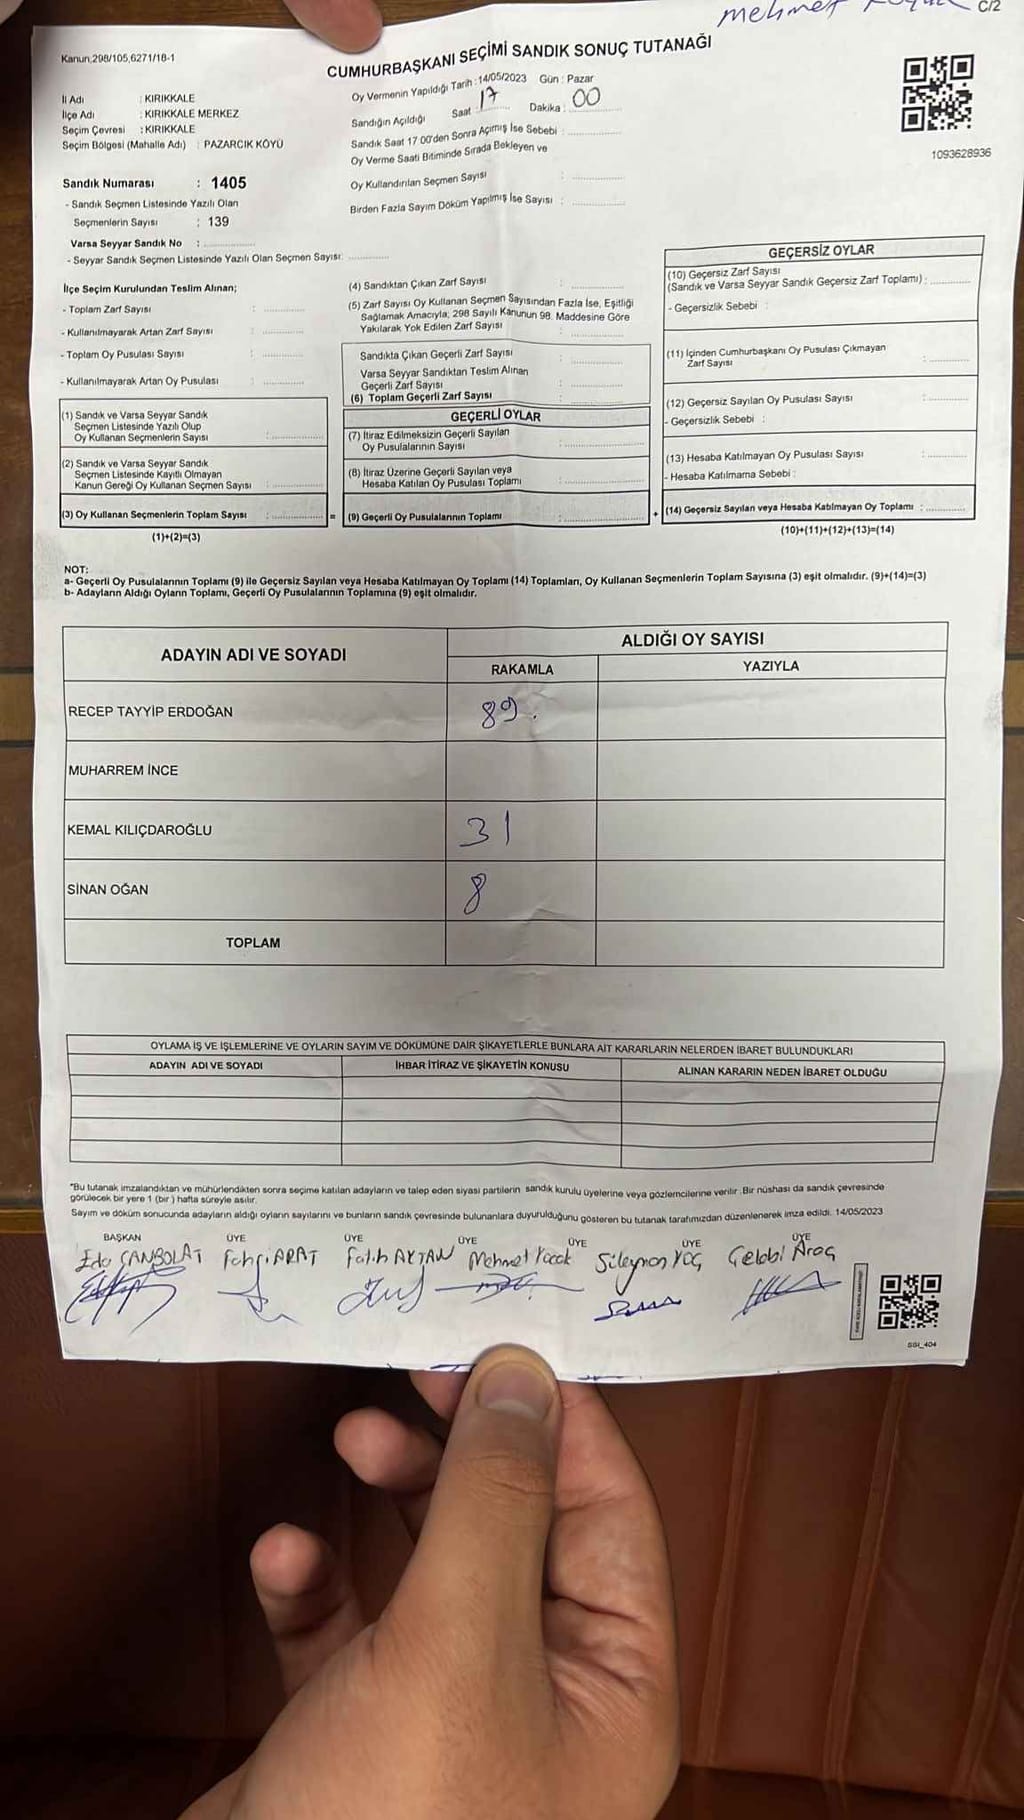 mehmet
C/2
Kanun,298/105,6271/18-1
CUMHURBAŞKANI SEÇİMİ SANDIK SONUÇ TUTANAĞI
1093628936
İl Adı : KIRIKKALE
İlçe Adı : KIRIKKALE MERKEZ
Seçim Çevresi : KIRIKKALE
Seçim Bölgesi (Mahalle Adı) : PAZARCIK KÖYÜ
Oy Vermenin Yapıldığı Tarih : 14/05/2023 Gün : Pazar
Sandığın Açıldığı Saat : 17 Dakika : 00
Sandık Saat 17 00'den Sonra Açımış İse Sebebi :
Oy Verme Saati Bitiminde Sırada Bekleyen ve
Oy Kullandırılan Seçmen Sayısı :
Birden Fazla Sayım Döküm Yapılmış İse Sayısı :
Sandık Numarası : 1405
- Sandık Seçmen Listesinde Yazılı Olan
Seçmenlerin Sayısı : 139
Varsa Seyyar Sandık No :
- Seyyar Sandık Seçmen Listesinde Yazılı Olan Seçmen Sayısı:
İlçe Seçim Kurulundan Teslim Alınan;
- Toplam Zarf Sayısı :
- Kullanılmayarak Artan Zarf Sayısı :
- Toplam Oy Pusulası Sayısı :
- Kullanılmayarak Artan Oy Pusulası :
(1) Sandık ve Varsa Seyyar Sandık
Seçmen Listesinde Yazılı Olup
Oy Kullanan Seçmenlerin Sayısı :
(2) Sandık ve Varsa Seyyar Sandık
Seçmen Listesinde Kayıtlı Olmayan
Kanun Gereği Oy Kullanan Seçmen Sayısı :
(3) Oy Kullanan Seçmenlerin Toplam Sayısı :
(1)+(2)=(3)
(4) Sandıktan Çıkan Zarf Sayısı :
(5) Zarf Sayısı Oy Kullanan Seçmen Sayısından Fazla İse, Eşitliği
Sağlamak Amacıyla; 298 Sayılı Kanunun 98. Maddesine Göre
Yakılarak Yok Edilen Zarf Sayısı :
Sandıkta Çıkan Geçerli Zarf Sayısı :
Varsa Seyyar Sandıktan Teslim Alınan
Geçerli Zarf Sayısı :
(6) Toplam Geçerli Zarf Sayısı :
GEÇERLİ OYLAR
(7) İtiraz Edilmeksizin Geçerli Sayılan
Oy Pusulalarının Sayısı :
(8) İtiraz Üzerine Geçerli Sayılan veya
Hesaba Katılan Oy Pusulası Toplamı :
= (9) Geçerli Oy Pusulalarının Toplamı : +
GEÇERSİZ OYLAR
(10) Geçersiz Zarf Sayısı
(Sandık ve Varsa Seyyar Sandık Geçersiz Zarf Toplamı) :
- Geçersizlik Sebebi :
(11) İçinden Cumhurbaşkanı Oy Pusulası Çıkmayan
Zarf Sayısı :
(12) Geçersiz Sayılan Oy Pusulası Sayısı :
- Geçersizlik Sebebi :
(13) Hesaba Katılmayan Oy Pusulası Sayısı :
- Hesaba Katılmama Sebebi :
(14) Geçersiz Sayılan veya Hesaba Katılmayan Oy Toplamı :
(10)+(11)+(12)+(13)=(14)
NOT:
a- Geçerli Oy Pusulalarının Toplamı (9) ile Geçersiz Sayılan veya Hesaba Katılmayan Oy Toplamı (14) Toplamları, Oy Kullanan Seçmenlerin Toplam Sayısına (3) eşit olmalıdır. (9)+(14)=(3)
b- Adayların Aldığı Oyların Toplamı, Geçerli Oy Pusulalarının Toplamına (9) eşit olmalıdır.
ADAYIN ADI VE SOYADI
ALDIĞI OY SAYISI
RAKAMLA YAZIYLA
RECEP TAYYİP ERDOĞAN 89.
MUHARREM İNCE
KEMAL KILIÇDAROĞLU 31
SİNAN OĞAN 8
TOPLAM
OYLAMA İŞ VE İŞLEMLERİNE VE OYLARIN SAYIM VE DÖKÜMÜNE DAİR ŞİKAYETLERLE BUNLARA AİT KARARLARIN NELERDEN İBARET BULUNDUKLARI
ADAYIN ADI VE SOYADI İHBAR İTİRAZ VE ŞİKAYETİN KONUSU ALINAN KARARIN NEDEN İBARET OLDUĞU
*Bu tutanak imzalandıktan ve mühürlendikten sonra seçime katılan adayların ve talep eden siyasi partilerin sandık kurulu üyelerine veya gözlemcilerine verilir. Bir nüshası da sandık çevresinde
görülecek bir yere 1 (bir) hafta süreyle asılır.
Sayım ve döküm sonucunda adayların aldığı oyların sayılarını ve bunların sandık çevresinde bulunanlara duyurulduğunu gösteren bu tutanak tarafımızdan düzenlenerek imza edildi. 14/05/2023
BAŞKAN ÜYE ÜYE ÜYE ÜYE ÜYE
Eda CANBOLAT Fahri ARAT Fatih AKTAN Mehmet Koçak Süleyman KOÇ Çelebi Araç
SSI_404